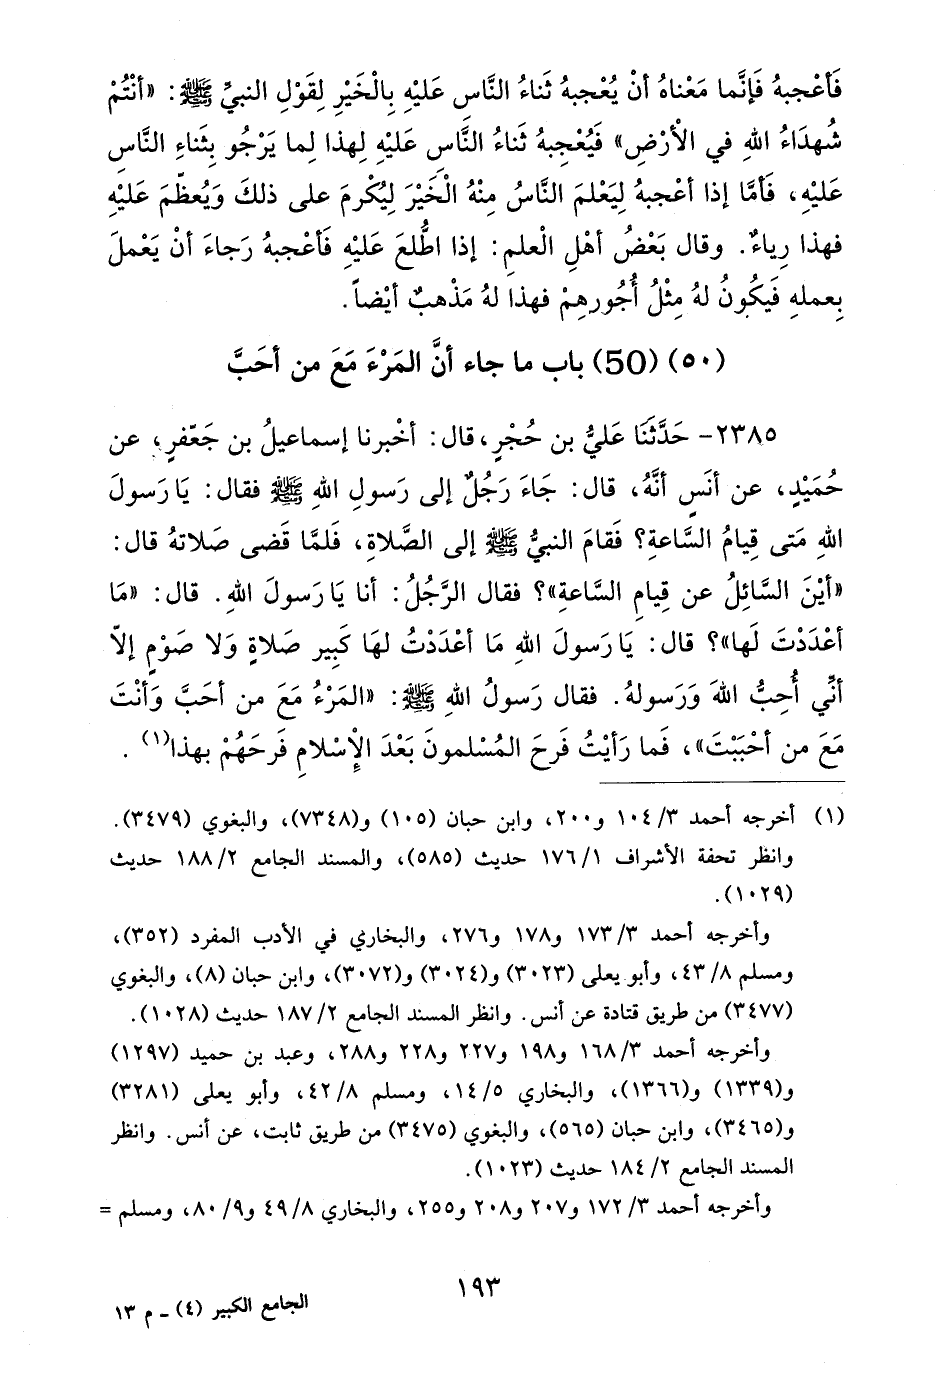 فَأعْجبهُ فَإنَّما مَعْناهُ أنْ يُعْجبهُ ثَناءُ النَّاسِ عَليْهِ بِالْخَيْرِ لِقَوْلِ النبيِّ ﷺ: «أنْتُمْ
شُهدَاءُ اللهِ في الْأرْضِ» فَيُعْجِبهُ ثَناءُ النَّاسِ عَليْهِ لِهذا لِما يَرْجُو بِثَناءِ النَّاسِ
عَليْهِ، فَأمَّا إذا أعْجبهُ لِيَعْلمَ النَّاسُ مِنْهُ الْخَيْرَ لِيُكْرمَ على ذلكَ وَيُعظَّمَ عَليْهِ
فهذا رِياءٌ. وقال بَعْضُ أهْلِ الْعلمِ: إذا اطُّلعَ عَليْهِ فَأعْجبهُ رَجاءَ أنْ يَعْملَ
بِعملهِ فَيكُونُ لهُ مِثْلُ أُجُورهِمْ فهذا لهُ مَذْهبٌ أيْضاً.
(٥٠) (50) باب ما جاء أنَّ المَرْءَ مَعَ من أحَبَّ
٢٣٨٥- حَدَّثَنَا عَليُّ بن حُجْرٍ، قال: أخْبرنا إسماعيلُ بن جَعْفرٍ، عن
حُمَيْدٍ، عن أنَسٍ أنَّهُ، قال: جَاءَ رَجُلٌ إلى رَسولِ اللهِ ﷺ فقال: يَا رَسولَ
اللهِ مَتى قِيامُ السَّاعةِ؟ فَقامَ النبيُّ ﷺ إلى الصَّلاةِ، فَلمَّا قَضى صَلاتهُ قال:
«أيْنَ السَّائِلُ عن قِيامِ السَّاعةِ»؟ فقال الرَّجُلُ: أنا يَا رَسولَ اللهِ. قال: «مَا
أعْدَدْتَ لَها»؟ قال: يَا رَسولَ اللهِ مَا أعْدَدْتُ لهَا كَبِير صَلاةٍ وَلا صَوْمٍ إلاّ
أنِّي أُحِبُّ اللهَ وَرَسولهُ. فقال رَسولُ اللهِ ﷺ: «المَرْءُ مَعَ من أحَبَّ وَأنْتَ
مَعَ من أحْبَبْتَ»، فَما رَأيْتُ فَرحَ المُسْلمونَ بَعْدَ الْإسْلامِ فَرحَهُمْ بهذا(١).
(١) أخرجه أحمد ٣/ ١٠٤ و٢٠٠، وابن حبان (١٠٥) و(٧٣٤٨)، والبغوي (٣٤٧٩).
وانظر تحفة الأشراف ١/ ١٧٦ حديث (٥٨٥)، والمسند الجامع ٢/ ١٨٨ حديث
(١٠٢٩).
وأخرجه أحمد ٣/ ١٧٣ و١٧٨ و٢٧٦، والبخاري في الأدب المفرد (٣٥٢)،
ومسلم ٨/ ٤٣، وأبو يعلى (٣٠٢٣) و(٣٠٢٤) و(٣٠٧٢)، وابن حبان (٨)، والبغوي
(٣٤٧٧) من طريق قتادة عن أنس. وانظر المسند الجامع ٢/ ١٨٧ حديث (١٠٢٨).
وأخرجه أحمد ٣/ ١٦٨ و١٩٨ و٢٢٧ و٢٢٨ و٢٨٨، وعبد بن حميد (١٢٩٧)
و(١٣٣٩) و(١٣٦٦)، والبخاري ٥/ ١٤، ومسلم ٨/ ٤٢، وأبو يعلى (٣٢٨١)
و(٣٤٦٥)، وابن حبان (٥٦٥)، والبغوي (٣٤٧٥) من طريق ثابت، عن أنس. وانظر
المسند الجامع ٢/ ١٨٤ حديث (١٠٢٣).
وأخرجه أحمد ٣/ ١٧٢ و٢٠٧ و٢٠٨ و٢٥٥، والبخاري ٨/ ٤٩ و٩/ ٨٠، ومسلم =
١٩٣
الجامع الكبير (٤) ـ م ١٣